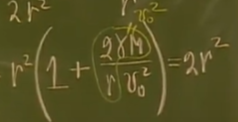 2r² v₀²
r²(1 + 2γM / r v₀²) = 2r²